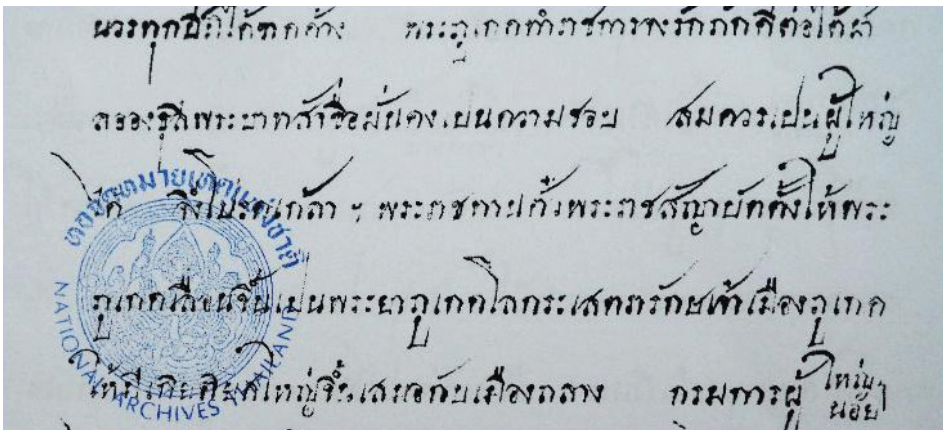 พระภูเกตทำราชการจงรักภักดีต่อใต้ฝ่า
ลอองธุลีพระบาทสัจซื่อมั่นคงเปนความชอบ สมควรเปนผู้ใหญ่
ได้ จึ่งโปรฎเกล้า ฯ พระราชทานตั้วพระราชสัญาบัตตั้งให้พระ
ภูเกตเลื่อนขึ้นเปนพระยาภูเกตโลกระเสตรารักษเจ้าเมืองภูเกต
ใหญ่ขึ้นเสมอกับเมืองถลาง กรมการผู้ใหญ่ น้อย
หอจดหมายเหตุแห่งชาติ
NATIONAL ARCHIVES THAILAND